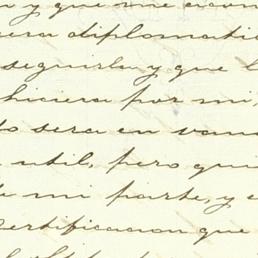 y que me
diplomati
seguirla y que l
hiciera por mi,
o sera en van
util, pero qui
mi parte, y e
ertificacion que